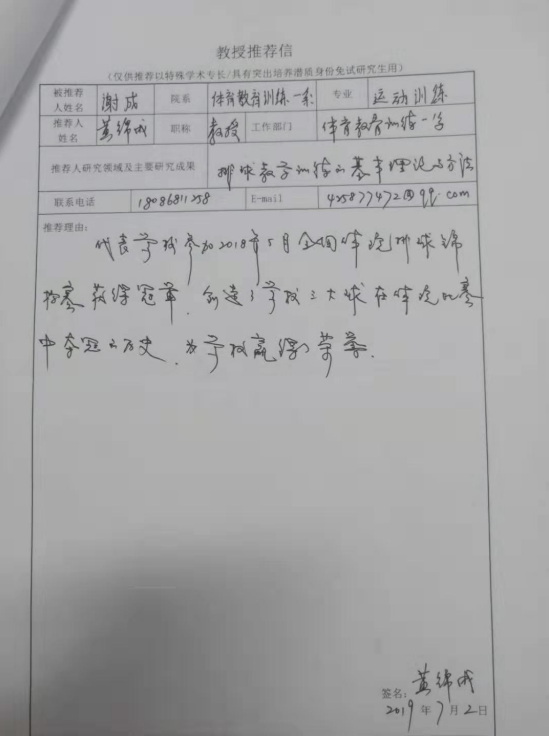 教授推荐信
（仅供推荐以特殊学术专长/具有突出培养潜质身份免试研究生用）
被推荐人姓名 谢成 院系 体育教育训练一系 专业 运动训练
推荐人姓名 黄锦成 职称 教授 工作部门 体育教育训练一学
推荐人研究领域及主要研究成果 排球教学训练的基本理论与方法
联系电话 18086811258 E-mail 425877472@qq.com
推荐理由：
代表学校参加2018年5月全国体院排球锦
标赛获得冠军，创造了学校三大球在体院比赛
中夺冠的历史，为学校赢得荣誉。
签名：黄锦成
2019年7月2日